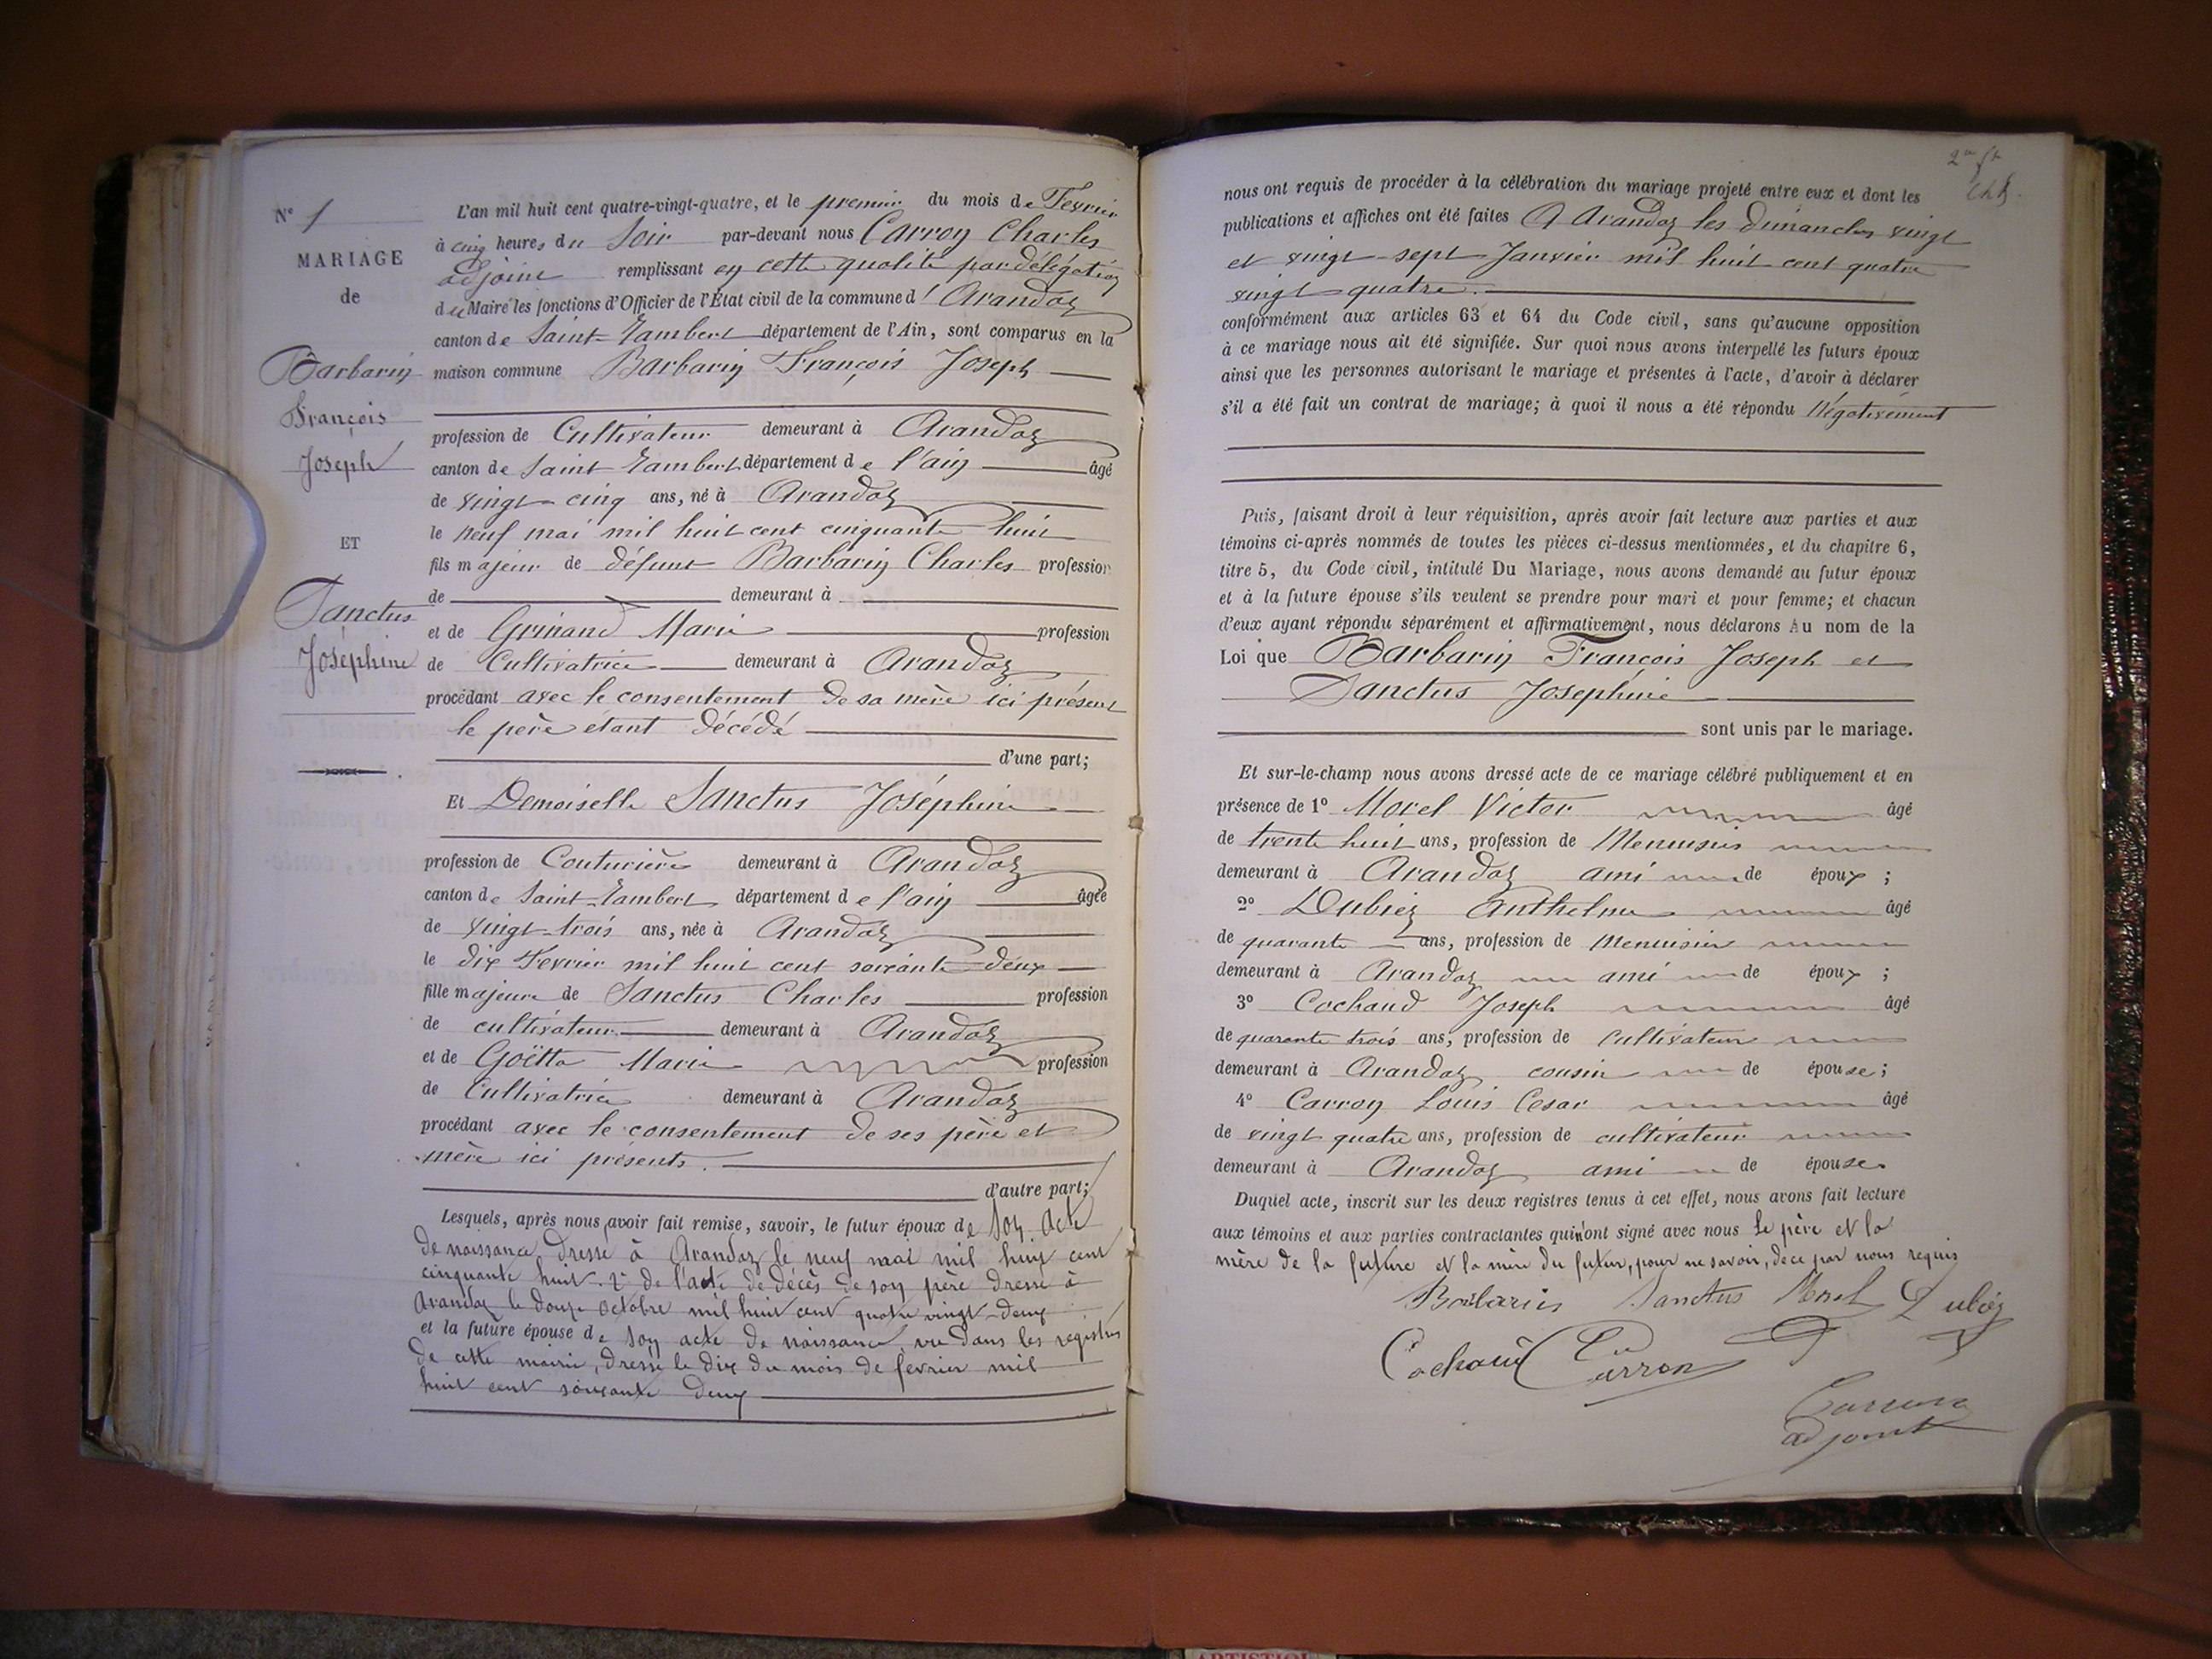 N° 1
MARIAGE
de
Barbarin
François
Joseph
ET
Sanctus
Joséphine
L'an mil huit cent quatre-vingt-quatre, et le premier du mois de Fevrier
à cinq heures du Soir par-devant nous Carron Charles
adjoint remplissant en cette qualité par délégation
du Maire les fonctions d'Officier de l'État civil de la commune d' Arandas
canton de Saint-Rambert département de l'Ain, sont comparus en la
maison commune Barbarin François Joseph
profession de Cultivateur demeurant à Arandas
canton de Saint Rambert département de l'ain âgé
de vingt-cinq ans, né à Arandas
le neuf mai mil huit cent cinquante huit
fils majeur de défunt Barbarin Charles profession
de demeurant à
et de Grinand Marie profession
de Cultivatrice demeurant à Arandas
procédant avec le consentement de sa mère ici présent
le père étant décédé
d'une part;
Et Demoiselle Sanctus Joséphine
profession de Couturière demeurant à Arandas
canton de Saint-Rambert département de l'ain âgée
de vingt-trois ans, née à Arandas
le dix Fevrier mil huit cent soixante-deux
fille majeure de Sanctus Charles profession
de cultivateur demeurant à Arandas
et de Goëtta Marie profession
de Cultivatrice demeurant à Arandas
procédant avec le consentement de ses père et
mère ici présents.
d'autre part;
Lesquels, après nous avoir fait remise, savoir, le futur époux de son acte
de naissance, dressé à Arandas le neuf mai mil huit cent
cinquante huit. 2° de l'acte de décès de son père dressé à
Arandas le douze octobre mil huit cent quatre vingt-deux
et la future épouse de son acte de naissance, vu dans les registres
de cette mairie, dressé le dix du mois de fevrier mil
huit cent soixante deux
nous ont requis de procéder à la célébration du mariage projeté entre eux et dont les
publications et affiches ont été faites A Arandas les dimanches vingt
et vingt-sept Janvier mil huit cent quatre
vingt quatre.
conformément aux articles 63 et 64 du Code civil, sans qu'aucune opposition
à ce mariage nous ait été signifiée. Sur quoi nous avons interpellé les futurs époux
ainsi que les personnes autorisant le mariage et présentes à l'acte, d'avoir à déclarer
s'il a été fait un contrat de mariage; à quoi il nous a été répondu Négativement
Puis, faisant droit à leur réquisition, après avoir fait lecture aux parties et aux
témoins ci-après nommés de toutes les pièces ci-dessus mentionnées, et du chapitre 6,
titre 5, du Code civil, intitulé Du Mariage, nous avons demandé au futur époux
et à la future épouse s'ils veulent se prendre pour mari et pour femme; et chacun
d'eux ayant répondu séparément et affirmativement, nous déclarons Au nom de la
Loi que Barbarin François Joseph et
Sanctus Josephine
sont unis par le mariage.
Et sur-le-champ nous avons dressé acte de ce mariage célébré publiquement et en
présence de 1° Morel Victor âgé
de trente huit ans, profession de Menuisier
demeurant à Arandas ami de époux ;
2° Dubiez Anthelme âgé
de quarante ans, profession de Menuisier
demeurant à Arandas ami de époux ;
3° Cochaud Joseph âgé
de quarante trois ans, profession de Cultivateur
demeurant à Arandas cousin de épouse ;
4° Carron Louis Cesar âgé
de vingt quatre ans, profession de cultivateur
demeurant à Arandas ami de épouse.
Duquel acte, inscrit sur les deux registres tenus à cet effet, nous avons fait lecture
aux témoins et aux parties contractantes qui n'ont signé avec nous le père et la
mère de la future et la mère du futur, pour ne savoir, de ce par nous requis
Barbarin Sanctus Morel Dubiez
Cochaud Carron
Carron
adjoint